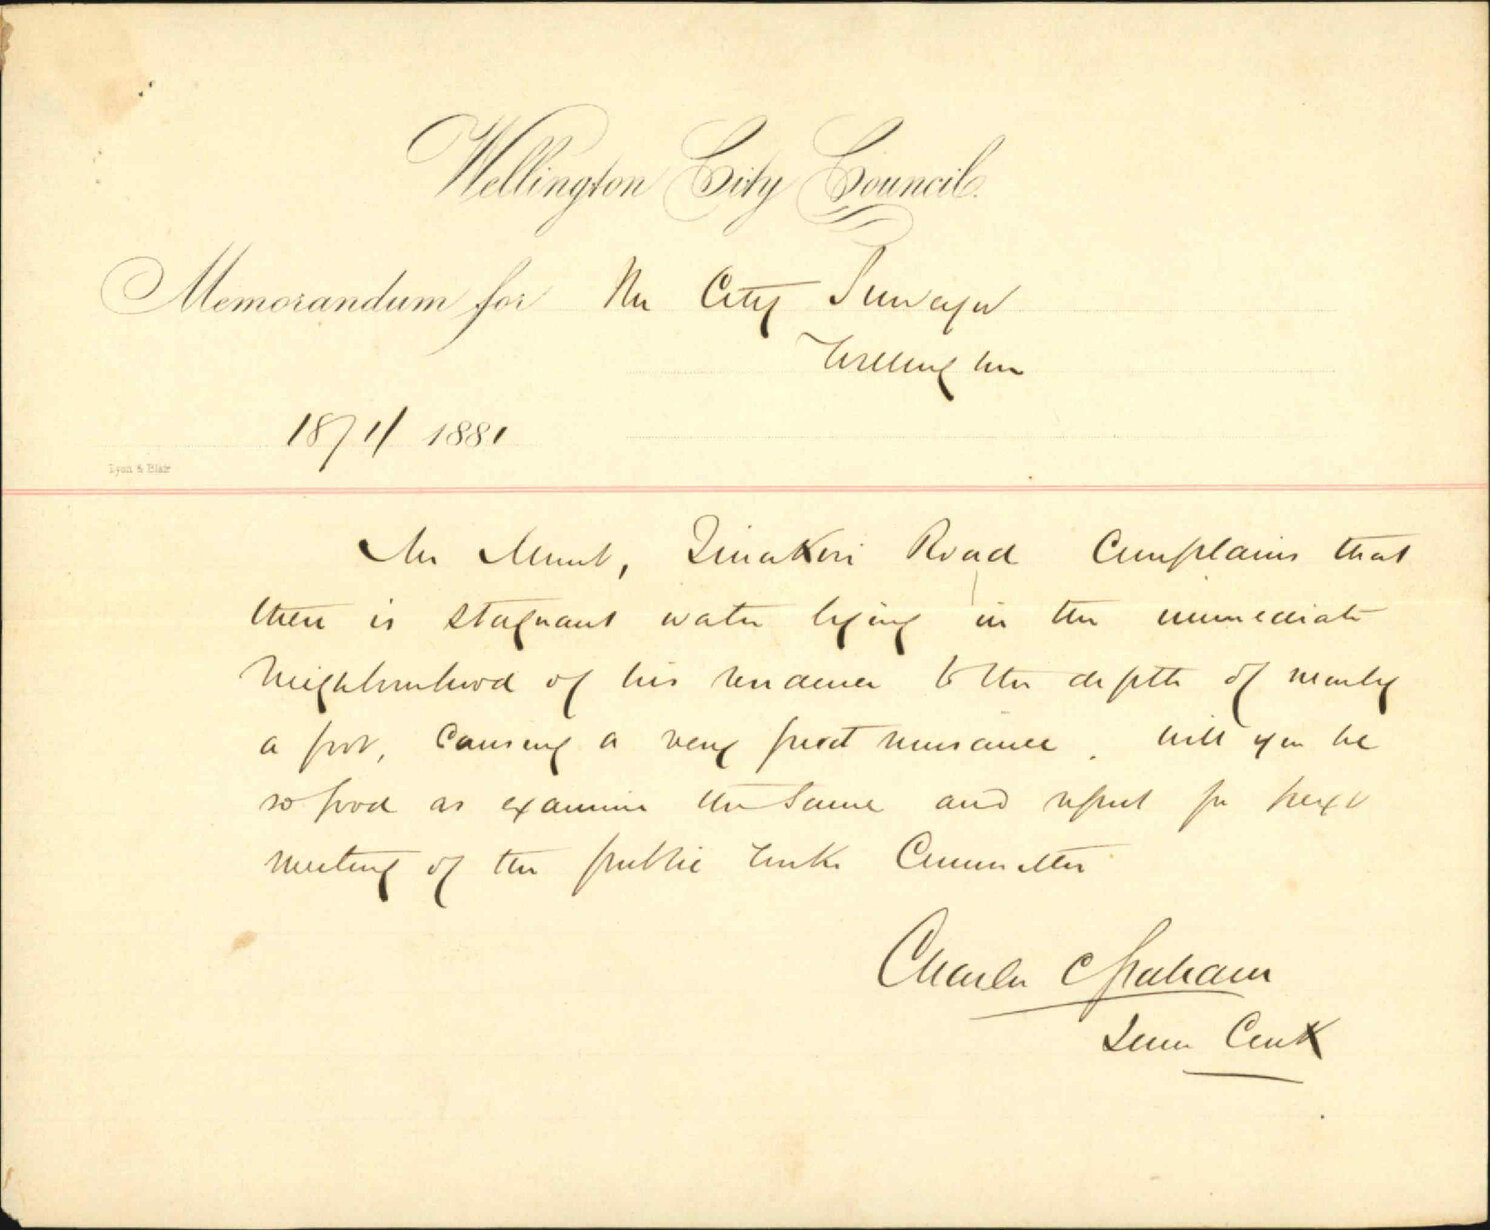 Wellington City Council.
Memorandum for The City Surveyor
Wellington
18/7/1881
Lyon & Blair
Mr Munt, Tinakori Road Complains that
there is stagnant water lying in the immediate
neighbourhood of his residence to the depth of nearly
a foot, causing a very great nuisance. Will you be
so good as examine the same and report for next
meeting of the public Works Committee
Charles C Graham
Town Clerk